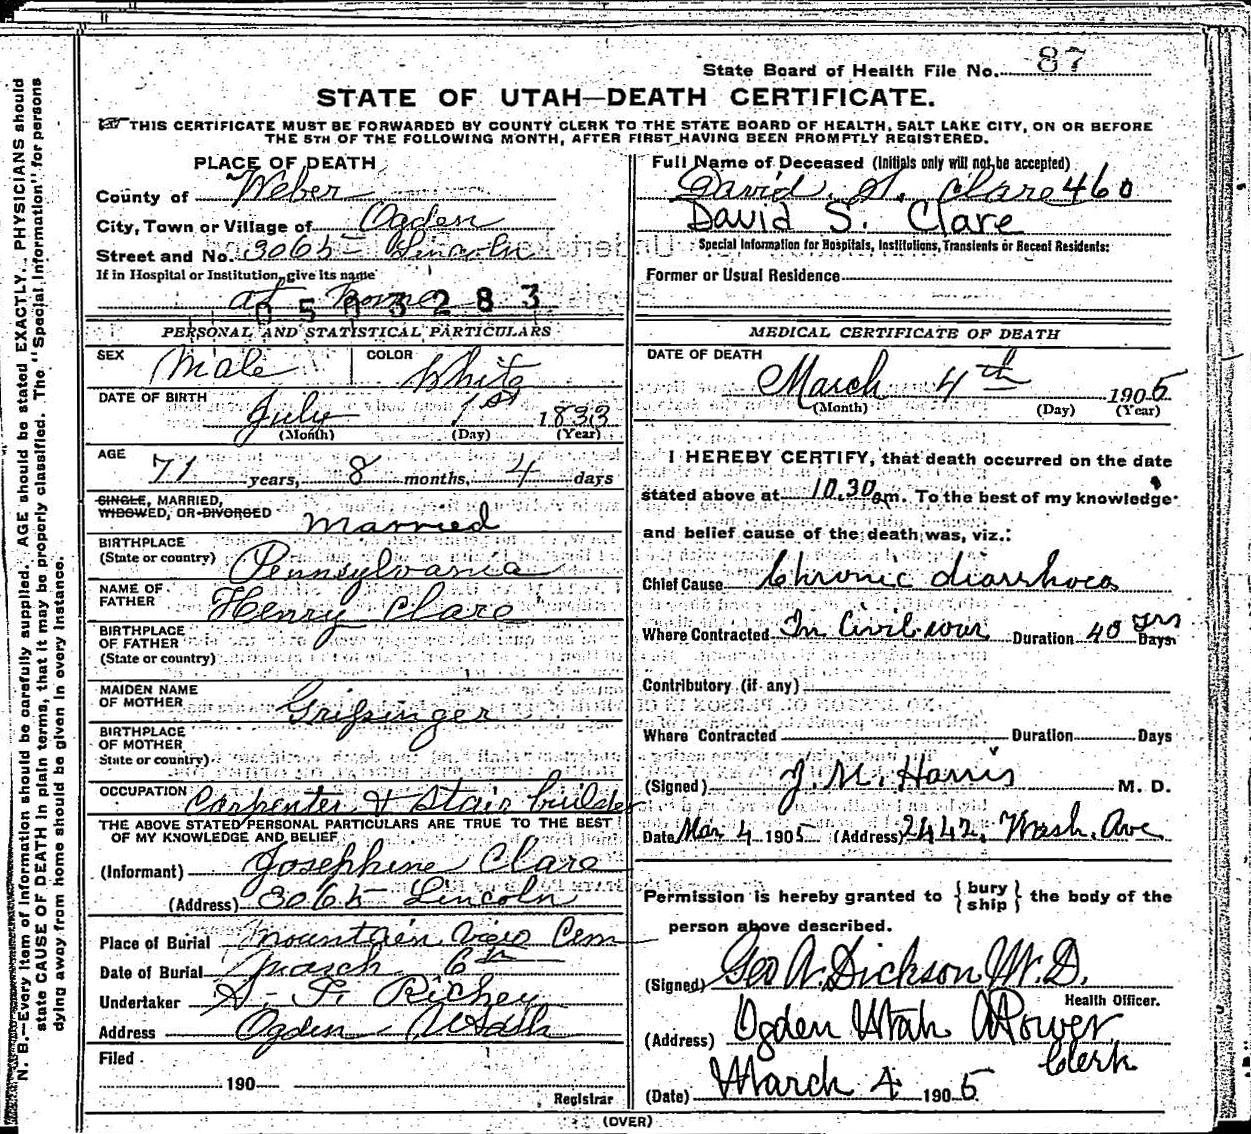 State Board of Health File No. 87
STATE OF UTAH—DEATH CERTIFICATE.
THIS CERTIFICATE MUST BE FORWARDED BY COUNTY CLERK TO THE STATE BOARD OF HEALTH, SALT LAKE CITY, ON OR BEFORE
THE 5TH OF THE FOLLOWING MONTH, AFTER FIRST HAVING BEEN PROMPTLY REGISTERED.
PLACE OF DEATH
County of Weber
City, Town or Village of Ogden
Street and No. 3065 Lincoln
If in Hospital or Institution, give its name
at home
0503283
PERSONAL AND STATISTICAL PARTICULARS
SEX Male COLOR White
DATE OF BIRTH July 1st 1833
(Month) (Day) (Year)
AGE
71 years, 8 months, 4 days
SINGLE, MARRIED,
WIDOWED, OR DIVORCED Married
BIRTHPLACE
(State or country) Pennsylvania
NAME OF
FATHER Henry Clare
BIRTHPLACE
OF FATHER
(State or country)
MAIDEN NAME
OF MOTHER Grifsinger
BIRTHPLACE
OF MOTHER
State or country)
OCCUPATION Carpenter & Stair builder
THE ABOVE STATED PERSONAL PARTICULARS ARE TRUE TO THE BEST
OF MY KNOWLEDGE AND BELIEF
(Informant) Josephine Clare
(Address) 3065 Lincoln
Place of Burial Mountain View Cem
Date of Burial March 6th
Undertaker Richey
Address Ogden Utah
Filed
190
Registrar
Full Name of Deceased (Initials only will not be accepted)
David S. Clare 460
David S. Clare
Special Information for Hospitals, Institutions, Transients or Recent Residents:
Former or Usual Residence
MEDICAL CERTIFICATE OF DEATH
DATE OF DEATH
March 4th 1905
(Month) (Day) (Year)
I HEREBY CERTIFY, that death occurred on the date
stated above at 10.30 am. To the best of my knowledge
and belief cause of the death was, viz.:
Chief Cause Chronic diarrhoea
Where Contracted In Civil war Duration 40 yrs Days
Contributory (if any)
Where Contracted Duration Days
(Signed) J. M. Harris M. D.
Date Mar 4 1905 (Address) 2442, Wash. Ave
Permission is hereby granted to { bury ship } the body of the
person above described.
(Signed) Geo A. Dickson M.D.
Health Officer.
(Address) Ogden Utah Power
Clerk
(Date) March 4 1905
(OVER)
N. B.—Every item of information should be carefully supplied. AGE should be stated EXACTLY. PHYSICIANS should
state CAUSE OF DEATH in plain terms, that it may be properly classified. The "Special Information" for persons
dying away from home should be given in every instance.